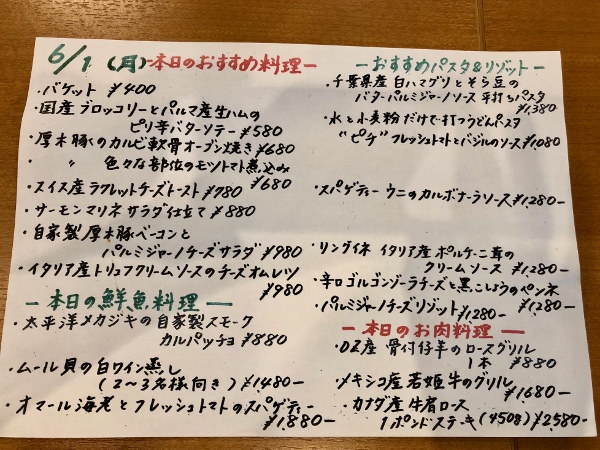 6/1 (月) -本日のおすすめ料理-
・バゲット ¥400
・国産ブロッコリーとパルマ産生ハムの
ピリ辛バターソテー ¥580
・厚木豚くのカルビ軟骨オーブン焼き ¥680
・ 〃 色々な部位のモツトマト煮込み
¥680
・スイス産ラクレットチーズトースト ¥780
・サーモンマリネサラダ仕立て ¥880
・自家製厚木豚ベーコンと
パルミジャーノチーズサラダ ¥980
・イタリア産トリュフクリームソースのチーズオムレツ
¥980
-本日の鮮魚料理-
・太平洋メカジキの自家製スモーク
カルパッチョ ¥880
・ムール貝の白ワイン蒸し
(2〜3名様向き) ¥1,480-
・オマール海老とフレッシュトマトのスパゲティー
¥1,880-
-おすすめパスタ&リゾット-
・千葉県産 白ハマグリとそら豆の
バターパルミジャーノソース 平打ちパスタ
¥1,380
・水と小麦粉だけで打つうどんパスタ
"ピチ" フレッシュトマトとバジルのソース ¥1,080
・スパゲティー ウニのカルボナーラソース ¥1,280-
・リングイネ イタリア産ポルチーニ茸の
クリームソース ¥1,280-
・辛口ゴルゴンゾーラチーズと黒こしょうのペンネ
¥1,280-
・パルミジャーノチーズリゾット ¥1,280-
-本日のお肉料理-
・OZ産 骨付仔羊のロースグリル
1本 ¥880
・メキシコ産 若姫牛のグリル
¥1680-
・カナダ産 牛肩ロース
1ポンドステーキ (450g) ¥2,580-